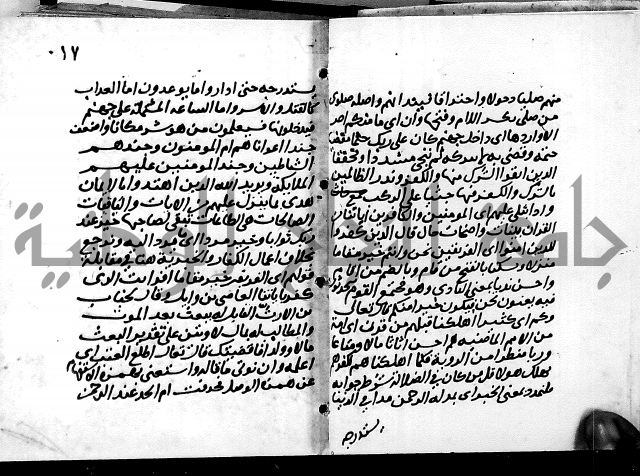 منهم صليا دخولا واحتراقا فيبدا بهم واصله صلوى
من صلى بكسر اللام وفتحها وان اى ما منكم احد
الا واردها اى داخل جهنم كان على ربك حتما مقضيا
حتمه وقضى به لا يتركه ثم ننجى مشددا ومخففا
الذين اتقوا الشرك منها والكفر ونذر الظالمين
بالشرك والكفر فيها جثيا على الركب
واذا تتلى عليهم اى المومنين والكافرين اياتنا من
القران بينات واضحات حال قال الذين كفروا
للذين امنوا اى الفريقين نحن وانتم خير مقاما
منزلا ومسكنا بالفتح من قام وبالضم من اقام
واحسن نديا بمعنى النادى وهو مجتمع القوم يتحدثون
فيه يعنون نحن فيكون خيرا منكم قال تعالى
وكم اى كثيرا اهلكنا قبلهم من قرن اى امة
من الامم الماضية هم احسن اثاثا مالا ومتاعا
وريا منظرا من الروية فكما اهلكناهم لكفرهم
نهلك هولا قل من كان فى الضلالة شرط جوابه
فليمدد بمعنى الخبر اى يمد له الرحمن مدا فى الدنيا
يستدرجه
٠١٧
يستدرجه حتى اذا راوا ما يوعدون اما العذاب
كالقتل والاسر واما الساعة المشتملة على جهنم
فيدخلونها فسيعلمون من هو شر مكانا واضعف
جندا اعوانا هم ام المومنون وجندهم
الشياطين وجند المومنين عليهم
الملايكة ويزيد الله الذين اهتدوا بالايمان
هدى بما ينزل عليهم من الايات والباقيات
الصالحات هى الطاعات تبقى لصاحبها خير عند
ربك ثوابا وخير مردا اى ما يرد اليه ويرجع
بخلاف اعمال الكفار والخيرية هنا فى مقابلة
قولهم اى الفريقين خير مقاما افرايت الذى
كفر باياتنا العاصى بن وايل وقال لخباب
بن الارت القايل له تبعث بعد الموت
والمطالب له بمال لاوتين على تقدير البعث
مالا وولدا فاقضيك قال تعالى اطلع الغيب اى
اعلمه وان يوتى ما قاله واستغنى بهمزة الاستفهام
عن همزة الوصل فحذفت ام اتخذ عند الرحمن